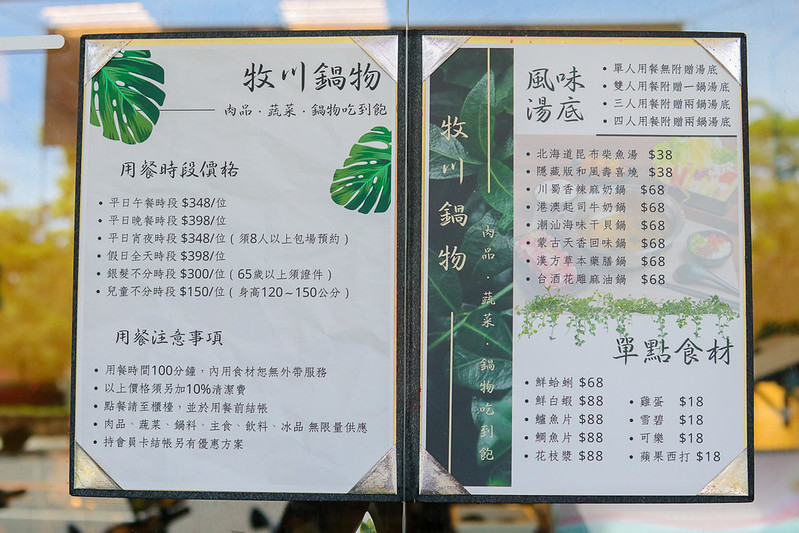 牧川鍋物
肉品．蔬菜．鍋物吃到飽
用餐時段價格
• 平日午餐時段 $348/位
• 平日晚餐時段 $398/位
• 平日宵夜時段 $348/位 ( 須8人以上包場預約 )
• 假日全天時段 $398/位
• 銀髮不分時段 $300/位 ( 65歲以上須證件 )
• 兒童不分時段 $150/位 ( 身高120~150公分 )
用餐注意事項
• 用餐時間100分鐘，內用食材恕無外帶服務
• 以上價格須另加10%清潔費
• 點餐請至櫃檯，並於用餐前結帳
• 肉品、蔬菜、鍋料、主食、飲料、冰品 無限量供應
• 持會員卡結帳另有優惠方案
牧川鍋物
肉品．蔬菜．鍋物吃到飽
風味
湯底
• 單人用餐無附贈湯底
• 雙人用餐附贈一鍋湯底
• 三人用餐附贈兩鍋湯底
• 四人用餐附贈兩鍋湯底
• 北海道昆布柴魚湯 $38
• 隱藏版和風壽喜燒 $38
• 川蜀香辣麻奶鍋 $68
• 港澳起司牛奶鍋 $68
• 潮汕海味干貝鍋 $68
• 蒙古天香回味鍋 $68
• 漢方草本藥膳鍋 $68
• 台酒花雕麻油鍋 $68
單點食材
• 鮮蛤蜊 $68
• 鮮白蝦 $88
• 鱸魚片 $88
• 鯛魚片 $88
• 花枝漿 $88
• 雞蛋 $18
• 雪碧 $18
• 可樂 $18
• 蘋果西打 $18